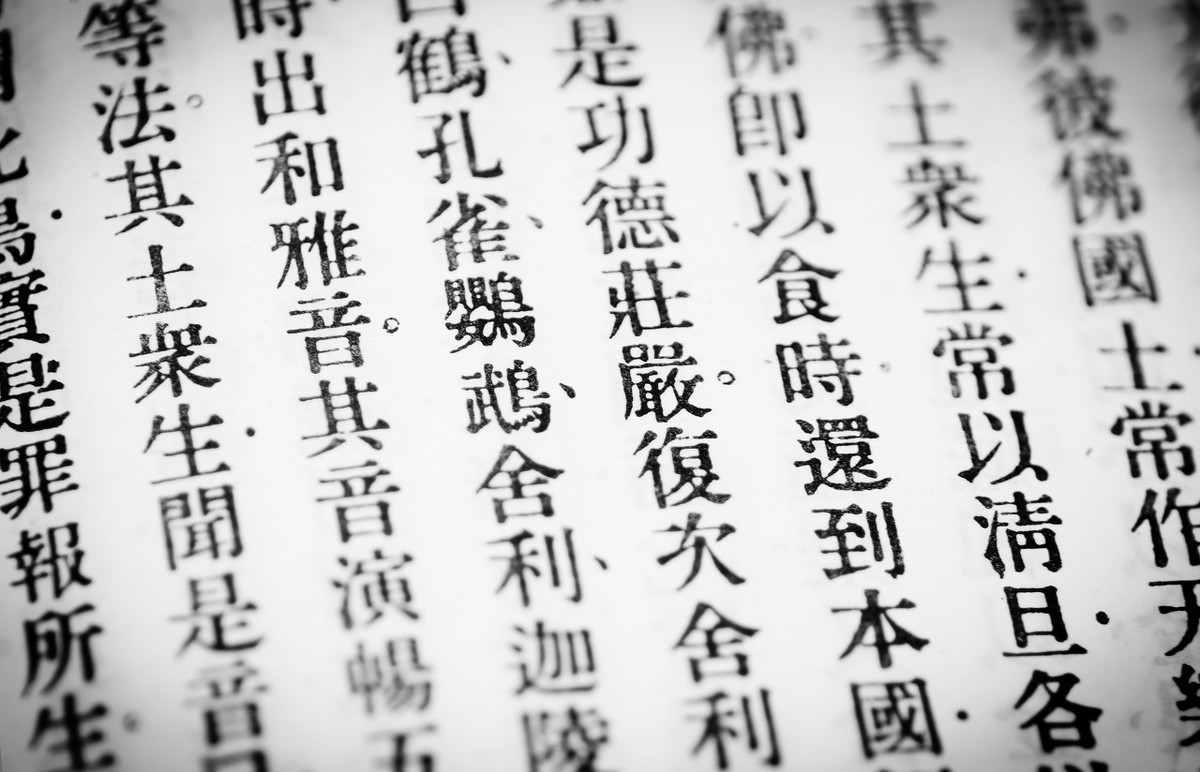 弗。彼佛國土常作天樂
其土衆生·常以淸旦·各
佛。卽以食時。還到本國·
是功德莊嚴。復次舍利
白鶴、孔雀、鸚鵡、舍利、迦陵
時出和雅音。其音演暢五
等法。其土衆生·聞是音
此鳥·實是罪報所生。